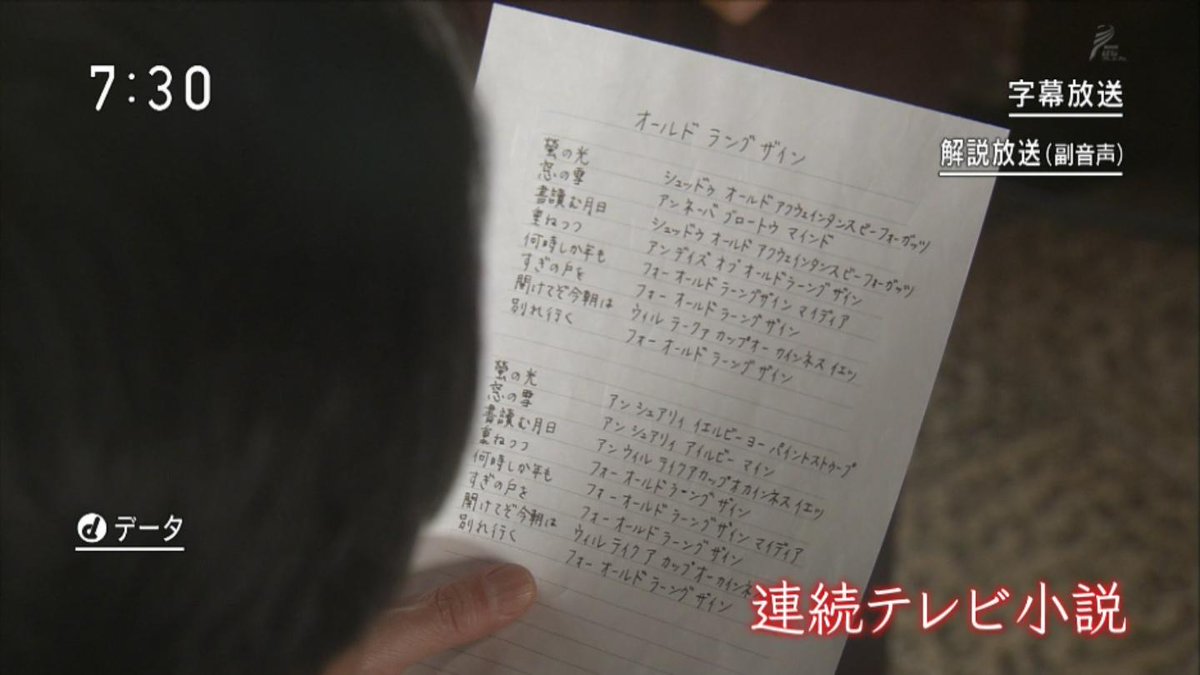 7:30
字幕放送
解説放送(副音声)
オールド ラングザイン
螢の光
窓の雪
書讀む月日
重ねつつ
何時しか年も
すぎの戸を
開けてぞ今朝は
別れ行く
シュッドゥ オールド アクウェインタンス ビーフォーガッツ
アン ネーバ ブロートゥ マインド
シュッドゥ オールド アクウェインタンス ビーフォーガッツ
アン デイズ オブ オールドラーングザイン
フォー オールド ラーングザイン マイディア
フォー オールド ラーングザイン
ウィル テークァ カップオー カインネス イエッ
フォー オールド ラーングザイン
螢の光
窓の雪
書讀む月日
重ねつつ
何時しか年も
すぎの戸を
開けてぞ今朝は
別れ行く
アン シュアリィ イエルビー ヨー パイントストゥープ
アン シュアリィ アイルビー マイン
アン ウィル テイクアカップオ カインネス イエッ
フォー オールド ラーングザイン
フォー オールド ラーングザイン マイディア
フォー オールド ラーングザイン
ウィル テイク ア カップオー カインネ
フォー オールド ラーングザイン
d データ
連続テレビ小説